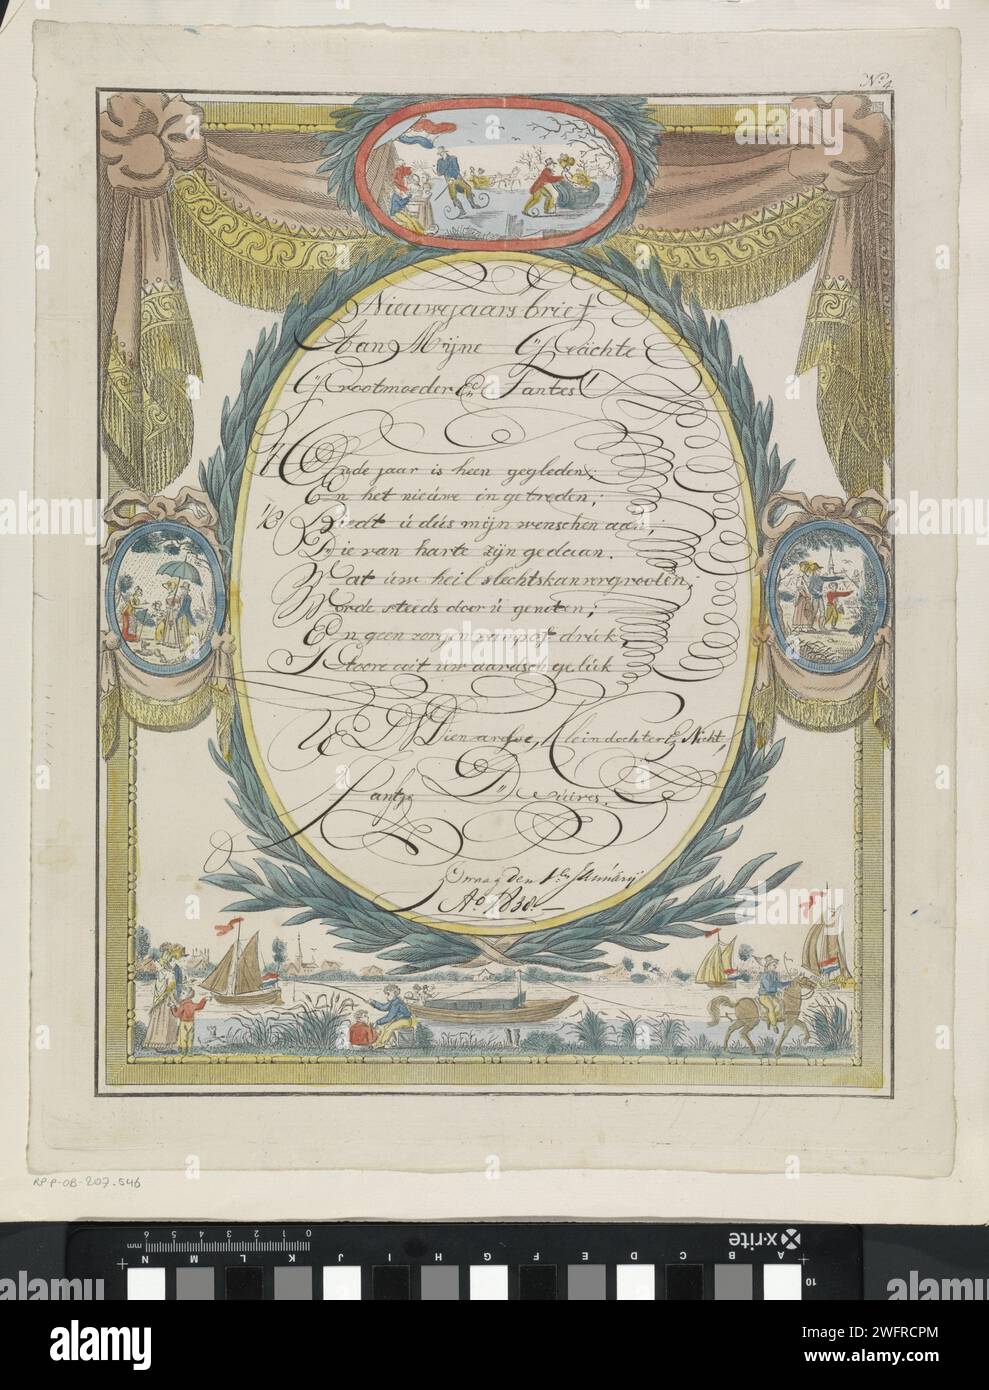 No. 4
Nieuwjaarsbrief
Aan Mijne Geächte
Grootmoeder En Tantes!
't Oude jaar is heen gegleden;
En het nieúwe ingetreden;
'k Biedt ú dús mijn wenschen aan,
Die van harte zijn gedaan.
Wat úw heil slechts kan vergrooten,
Worde steeds door ú genoten;
En geen zorgen ramp of druk,
Stoore ooit uw aardsch gelúk
UE DW Dienaresse, Kleindochter En Nicht,
Jantje
den 1e Januarij
Ao. 1838.
RP-P-OB-207.546
mm 6 5 4 3 2 1 0
x-rite
N M L K J I H G F E D C B A
10
alamy
Image ID: 2WFRCPM
www.alamy.com